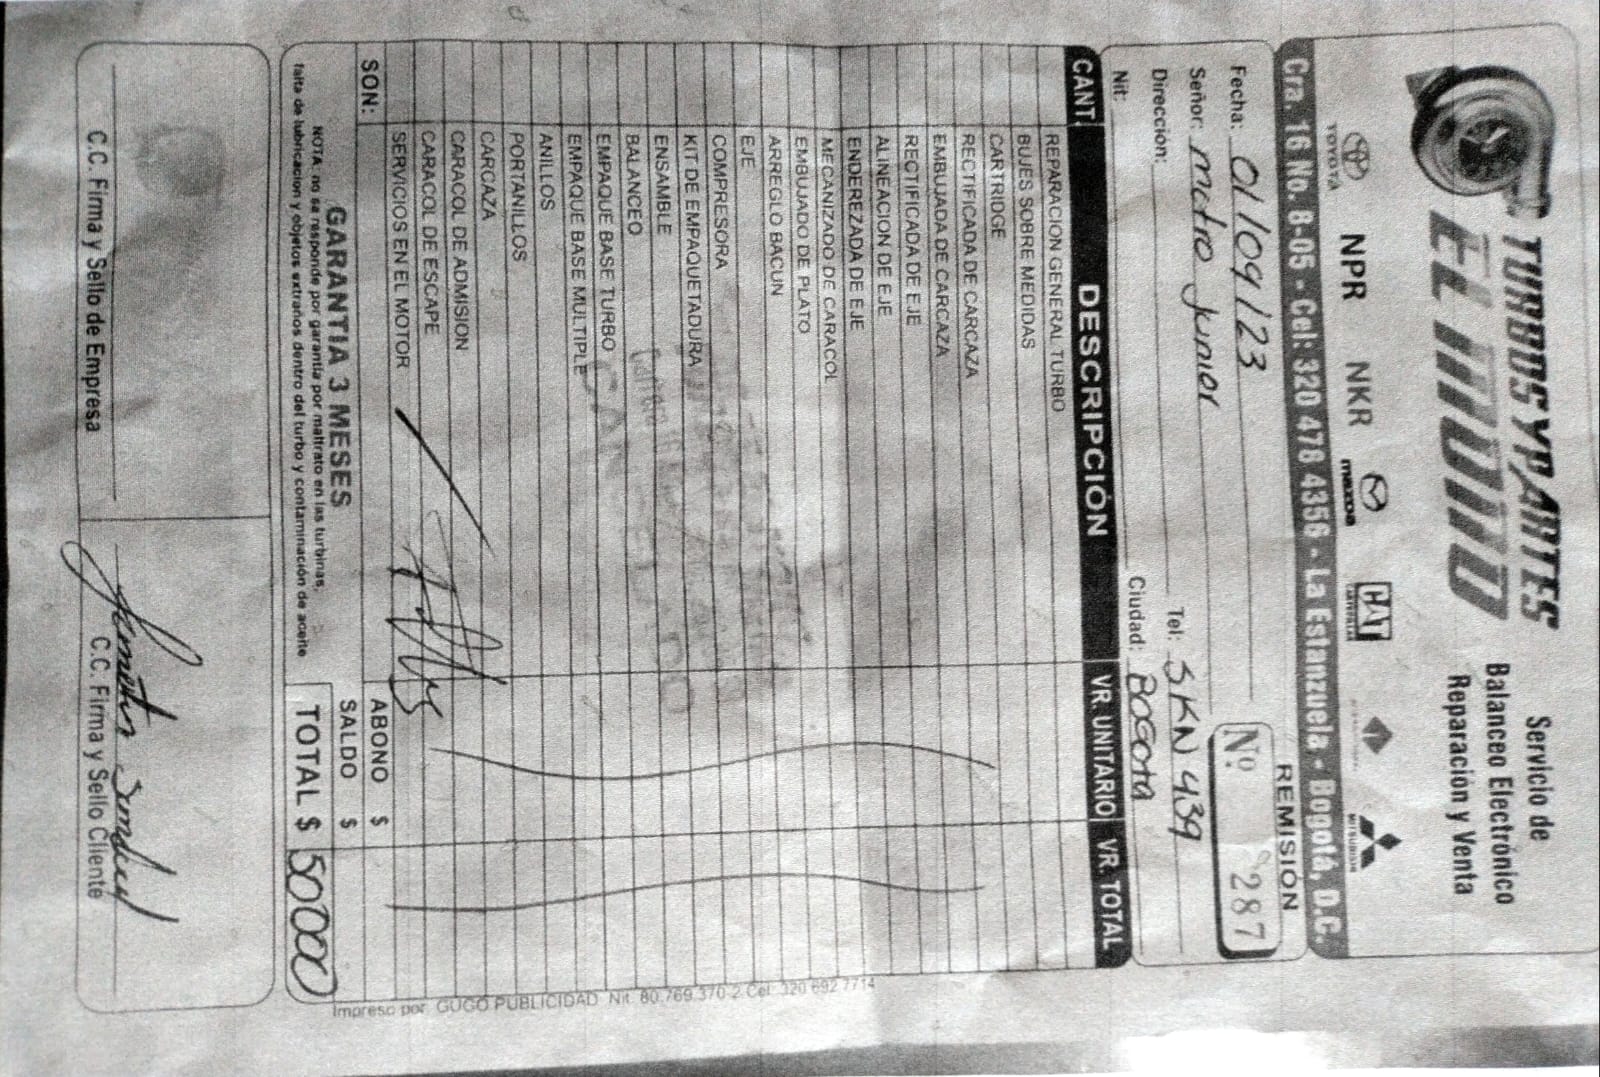 TURBOS Y PARTES
EL INDIO
Servicio de
Balanceo Electrónico
Reparación y Venta
TOYOTA NPR NKR mazda CAT CATERPILLAR MITSUBISHI
Cra. 16 No. 8-05 - Cel: 320 478 4356 - La Estanzuela - Bogotá, D.C.
REMISIÓN
No. 287
Fecha: 01/09/23
Señor: motro junior Tel: SKN 439
Dirección: Ciudad: BOGOTA
Nit:
CANT. DESCRIPCIÓN VR. UNITARIO VR. TOTAL
REPARACION GENERAL TURBO
BUJES SOBRE MEDIDAS
CARTRIDGE
RECTIFICADA DE CARCAZA
EMBUJADA DE CARCAZA
RECTIFICADA DE EJE
ALINEACION DE EJE
ENDEREZADA DE EJE
MECANIZADO DE CARACOL
EMBUJADO DE PLATO
ARREGLO BACUN
EJE
COMPRESORA
KIT DE EMPAQUETADURA
ENSAMBLE
BALANCEO
EMPAQUE BASE TURBO
EMPAQUE BASE MULTIPLE
ANILLOS
PORTANILLOS
CARCAZA
CARACOL DE ADMISION
CARACOL DE ESCAPE
SERVICIOS EN EL MOTOR
SON:
ABONO $
SALDO $
TOTAL $ 50000
GARANTIA 3 MESES
NOTA. no se responde por garantía por maltrato en las turbinas,
falta de lubricacion y objetos extraños dentro del turbo y contaminación de aceite
C.C. Firma y Sello de Empresa
C.C. Firma y Sello Cliente
Impreso por GUGO PUBLICIDAD Nit. 80.769.370-2 Cel. 320 692 7714